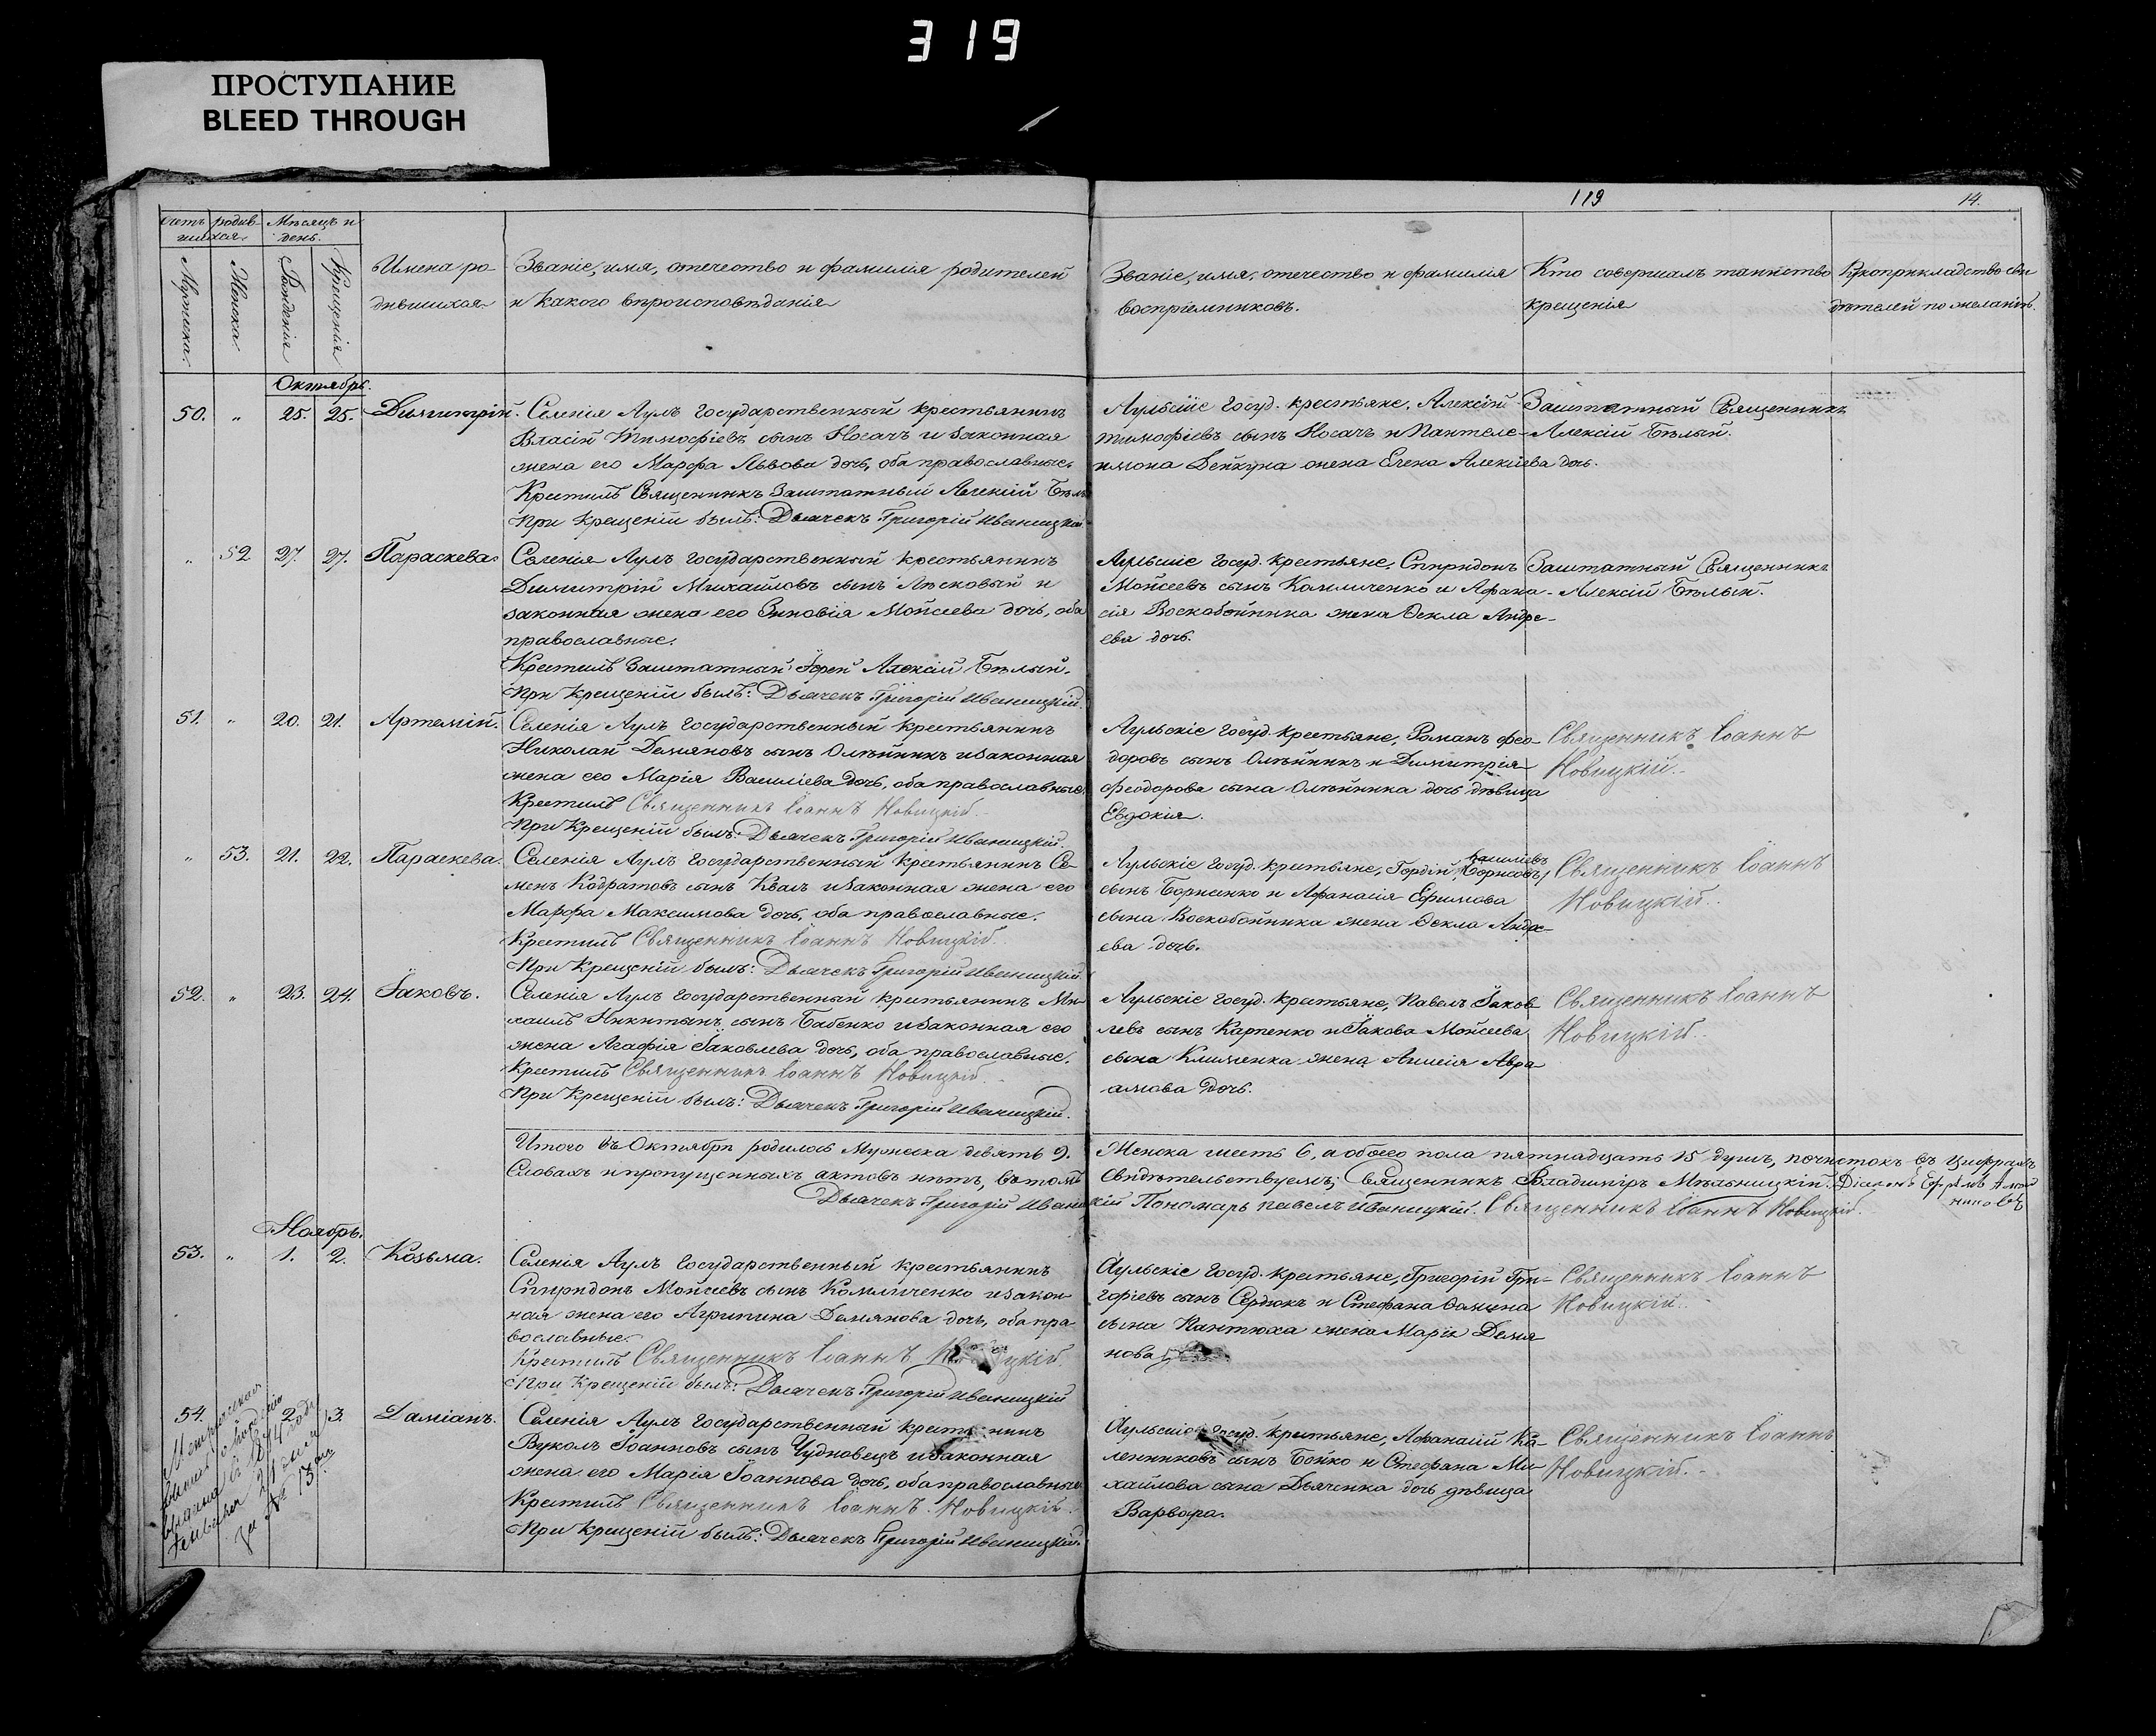 319
ПРОСТУПАНИЕ
BLEED THROUGH
119
14.
Счетъ родив-
шихся.
Мѣсяцъ и
день.
Мужеска.
Женска
Рожденія
Крещенія
Имена ро
дившихся
Званіе, имя, отечество и фамилія родителей
и какого вѣроисповѣданія
Званіе, имя, отечество и фамилія
воспріемниковъ.
Кто совершалъ таинство
крещенія
Рукоприкладство сви
дѣтелей по желанію.
Октябрь.
50. „ 25. 25. Димитрій.
Селенія Аулъ государственный крестьянинъ
Власій Тимофіевъ сынъ Носачъ и законная
жена его Марфа Львова дочь, оба православные.
Крестилъ Священникъ Заштатный Алексій Бѣлый
При крещеніи былъ: Дьячекъ Григорій Иваницкій
Аульскіе госуд. крестьяне, Алексій
Тимофіевъ сынъ Носачъ и Пантеле-
имона Дейкуна жена Елена Алексіева дочь.
Заштатный Священникъ
Алексій Бѣлый.
„ 52 27. 27. Параскева
Селенія Аулъ государственный крестьянинъ
Димитрій Михайловъ сынъ Лѣсковый и
законная жена его Зиновія Мойсеева дочь, оба
православные.
Крестилъ Заштатный Іерей Алексій Бѣлый.
При крещеніи былъ: Дьячекъ Григорій Иваницкій.
Аульскіе госуд. крестьяне, Спиридонъ
Мойсеевъ сынъ Комличенко и Афана-
сія Воскобойника жена Ѳекла Андре-
ева дочь.
Заштатный Священникъ
Алексій Бѣлый.
51. „ 20. 21. Артемій.
Селенія Аулъ государственный крестьянинъ
Николай Демяновъ сынъ Олѣйникъ и законная
жена его Марія Василіева дочь, оба православные.
Крестилъ Священникъ Іоаннъ Новицкій.
При крещеніи былъ: Дьячекъ Григорій Иваницкій.
Аульскіе госуд. крестьяне, Романъ Фео-
доровъ сынъ Олѣйникъ и Димитрія
Феодорова сына Олѣйника дочь дѣвица
Евдокія.
Священникъ Іоаннъ
Новицкій.
„ 53. 21. 22. Параскева.
Селенія Аулъ государственный крестьянинъ Се-
менъ Кодратовъ сынъ Квалъ и законная жена его
Марфа Максимова дочь, оба православные.
Крестилъ Священникъ Іоаннъ Новицкій.
При крещеніи былъ: Дьячекъ Григорій Иваницкій
Василіевъ
Аульскіе госуд. крестьяне, Гордій (Борисовъ)
сынъ Борисенко и Афанасія Ефимова
сына Воскобойника жена Ѳекла Андре-
ева дочь.
Священникъ Іоаннъ
Новицкій.
52. „ 23. 24. Іаковъ.
Селенія Аулъ государственный крестьянинъ Ми-
хаилъ Никитынъ сынъ Бабенко и законная его
жена Агафія Іаковлева дочь, оба православные.
Крестилъ Священникъ Іоаннъ Новицкій.
При крещеніи былъ: Дьячекъ Григорій Иваницкій.
Аульскіе госуд. крестьяне, Павелъ Іаков-
левъ сынъ Карпенко и Іакова Мойсеева
сына Климченка жена Анисія Авра-
амова дочь.
Священникъ Іоаннъ
Новицкій.
Итого въ Октябрѣ родилось Мужеска девять 9. Женска шесть 6, а обоего пола пятнадцать 15 душъ, почистокъ въ цифрахъ
словахъ и пропущенныхъ актовъ нѣтъ, въ томъ свидѣтельствуемъ: Священникъ Владимиръ Мѣльницкій. Діаконъ
Дьячекъ Григорій Иваницкій Пономарь Павелъ Иваницкій. Священникъ Іоаннъ Новицкій.
Ноябрь.
53. „ 1. 2. Козьма.
Селенія Аулъ государственный крестьянинъ
Спиридонъ Мойсеевъ сынъ Комличенко и закон-
ная жена его Агрипина Демянова дочь, оба пра
вославные.
Крестилъ Священникъ Іоаннъ Новицкій.
При крещеніи былъ: Дьячекъ Григорій Иваницкій
Аульскіе госуд. крестьяне, Григорій Гри-
горіевъ сынъ Сердюкъ и Стефана Ѳомина
сына Пантюха жена Марія Демя
нова
Священникъ Іоаннъ
Новицкій.
54. 2. 3. Даміанъ.
Селенія Аулъ государственный крестьянинъ
Вуколъ Іоанновъ сынъ Чудновецъ и законная
жена его Марія Іоаннова дочь, оба православные
Крестилъ Священникъ Іоаннъ Новицкій.
При крещеніи былъ: Дьячекъ Григорій Иваницкій.
Аульскіе госуд. крестьяне, Афанасій Ка-
ленниковъ сынъ Бойко и Стефана Ми-
хайлова сына Дьяченка дочь дѣвица
Варвара.
Священникъ Іоаннъ
Новицкій.
Метрическая
выпись о рожденіи
выдана въ 1874 году
за № 13